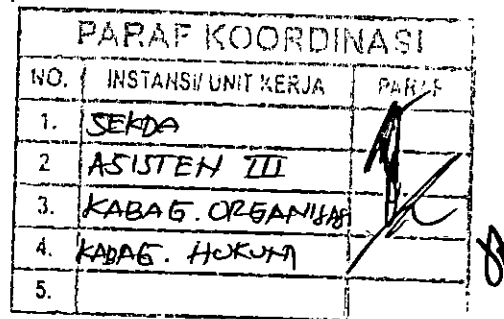 PARAF KOORDINASI
NO. INSTANSI/ UNIT KERJA PARAF
1. SEKDA
2 ASISTEN III
3. KABAG. ORGANISAS
4. KABAG. HUKUM
5.